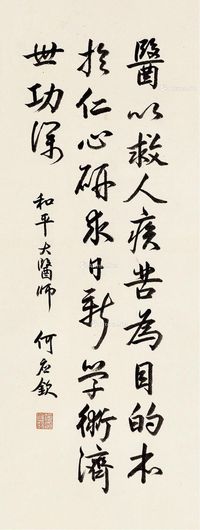 醫以救人疾苦為目的本
於仁心研求日新學術濟
世功深
和平大醫師
何應欽